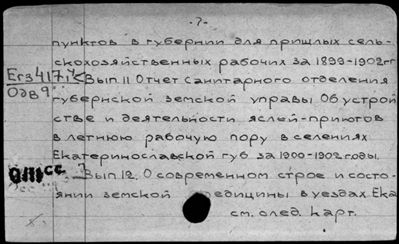 - 7 -
пунктов в губернии для пришлых сель-
скохозяйственных рабочих за 1899-1902гг
Вып. 11 Отчет санитарного отделения
губернской земской управы Об устрой
стве и деятельности яслей-приютов
в летнюю рабочую пору в селениях
Екатеринославской губ за 1900-1902 годы.
Вып 12. О современном строе и состо-
янии земской медицины в уездах Ека
см. след. карт.